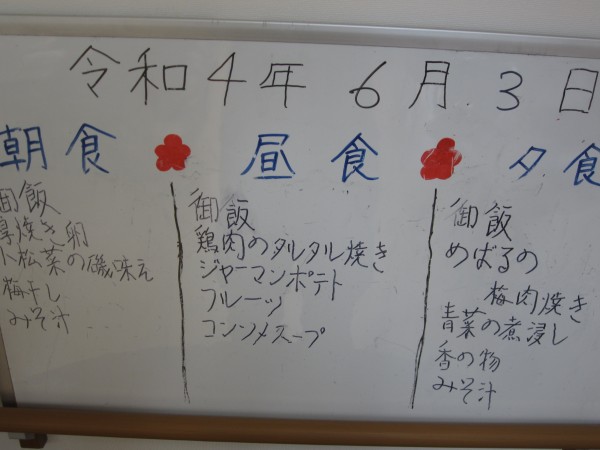 令和4年 6月 3日
朝食
御飯
厚焼き卵
小松菜の磯味え
梅干し
みそ汁
昼食
御飯
鶏肉のタルタル焼き
ジャーマンポテト
フルーツ
コンソメスープ
夕食
御飯
めばるの
梅肉焼き
青菜の煮浸し
香の物
みそ汁